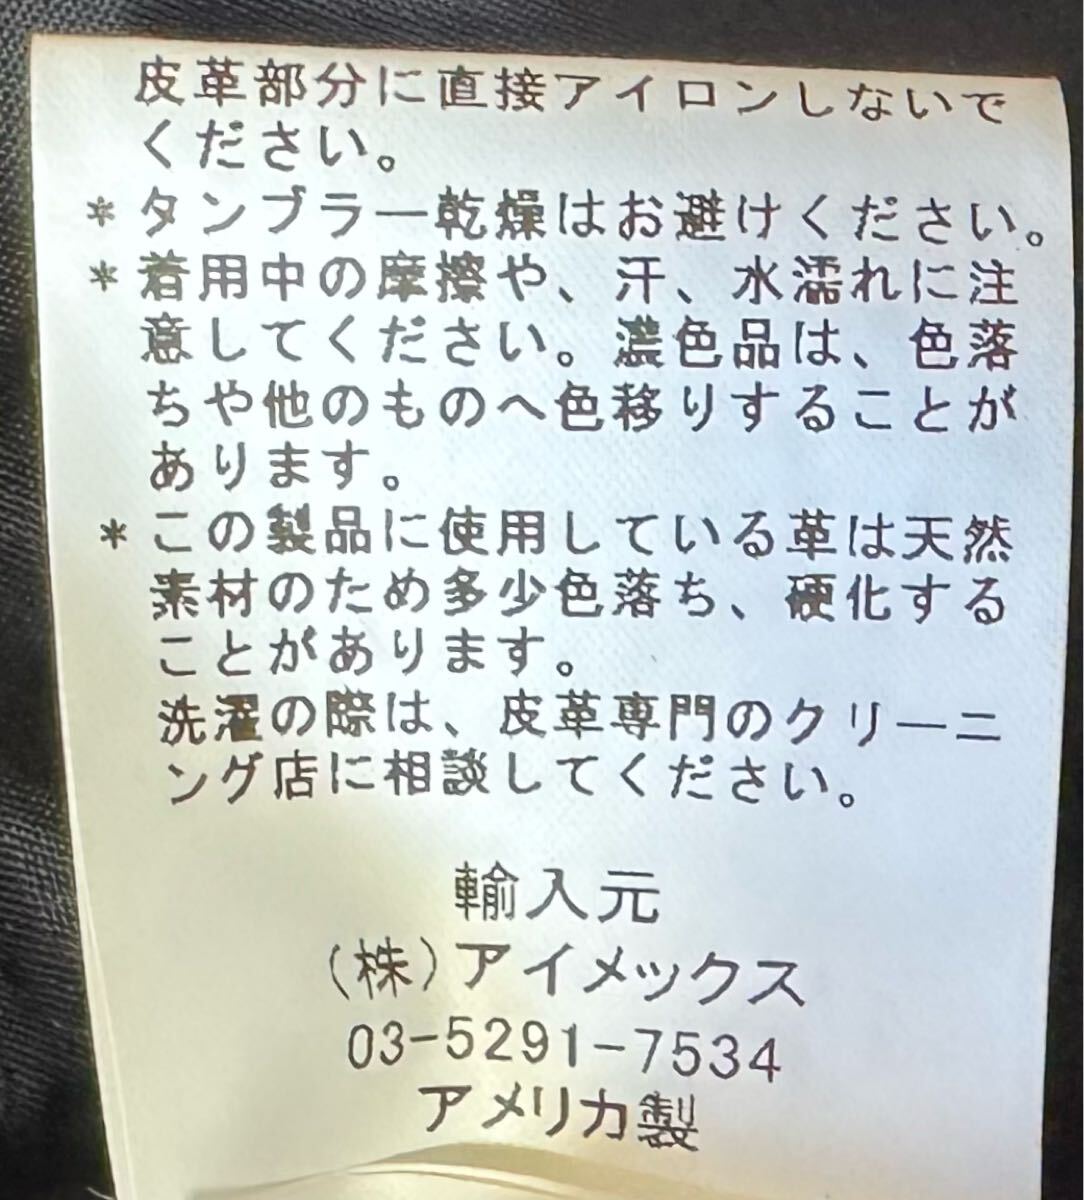 皮革部分に直接アイロンしないで
ください。
* タンブラー乾燥はお避けください。
* 着用中の摩擦や、汗、水濡れに注
意してください。濃色品は、色落
ちや他のものへ色移りすることが
あります。
* この製品に使用している革は天然
素材のため多少色落ち、硬化する
ことがあります。
洗濯の際は、皮革専門のクリーニ
ング店に相談してください。
輸入元
(株)アイメックス
03-5291-7534
アメリカ製